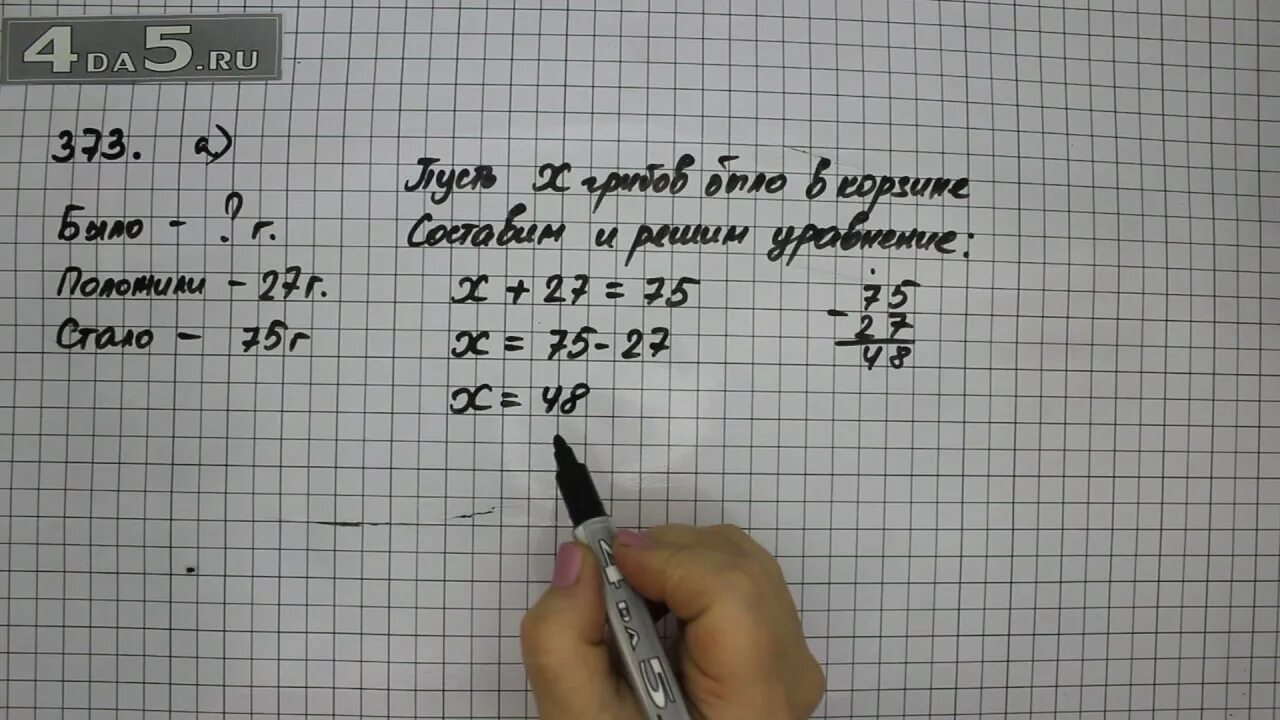 4DA5.RU
373. а)
Было - ? г.
Положили - 27г.
Стало - 75г
Пусть х грибов было в корзине
Составим и решим уравнение:
х + 27 = 75
х = 75 - 27
х = 48
75
- 27
48
4DA5.